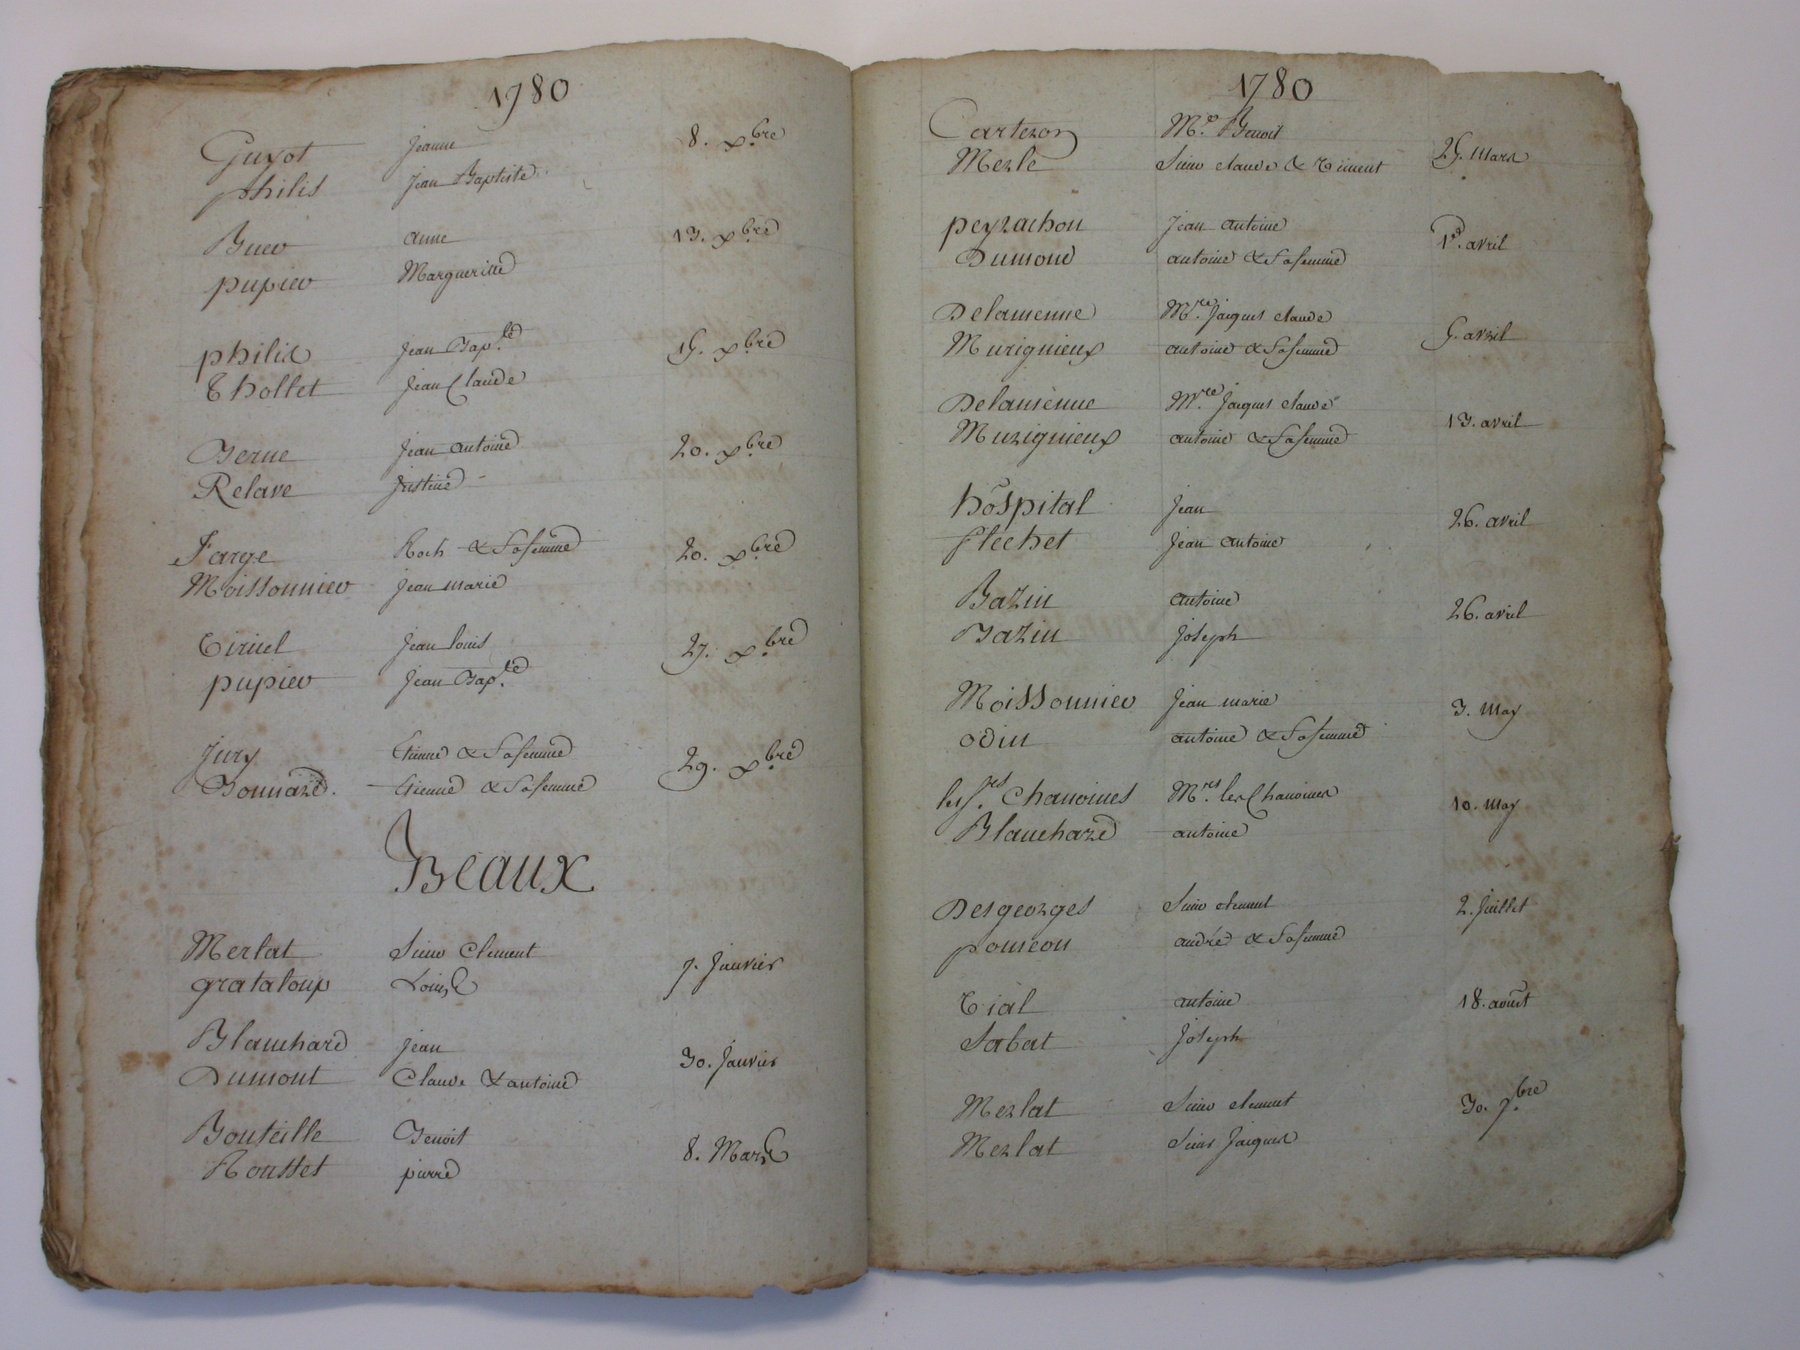 1780
Guyot Jeanne 8. Xbre
philis Jean Baptiste
Buer anne 13. Xbre
pupier Margueritte
philis Jean Bapte 15. Xbre
Thollet Jean Claude
Berne Jean antoine 20. Xbre
Relave Justine
Farge Roch & Sa femme 20. Xbre
Moissonnier Jean marie
Tiruel Jean louis 27. Xbre
pupier Jean Bapte
Jury Etienne & Sa femme 29. Xbre
Bonnard. Etienne & Sa femme
Beaux
Merlat Sieur Clement 7. Janvier
grataloup Louis
Blanchard Jean 30. Janvier
Dumont Claude & antoine
Bouteille Benoit 8. Mars
Rousset pierre
1780
Carteron Me. Benoit 25. mars
Merle Sieur claude &
peyrachon Jean antoine 1er. avril
Dumond antoine & Sa femme
Delamenne Mre. Jacques claude 5. avril
Murignieux antoine & Sa femme
Delamenne Mre. Jacques claude 13. avril
Murignieux antoine & Sa femme
hôspital Jean 26. avril
flechet Jean antoine
Bazin antoine 26. avril
Bazin Joseph
Moissonnier Jean marie 3. May
odin antoine & Sa femme
Chanoines Mrs. les Chanoines 10. May
Blanchard antoine
Desgeorges Sieur clement 2. Juillet
poncon andré & Sa femme
Tial antoine 18. aoust
Sabat Joseph
Merlat Sieur clement 30. 7bre
Merlat Sieur Jacques